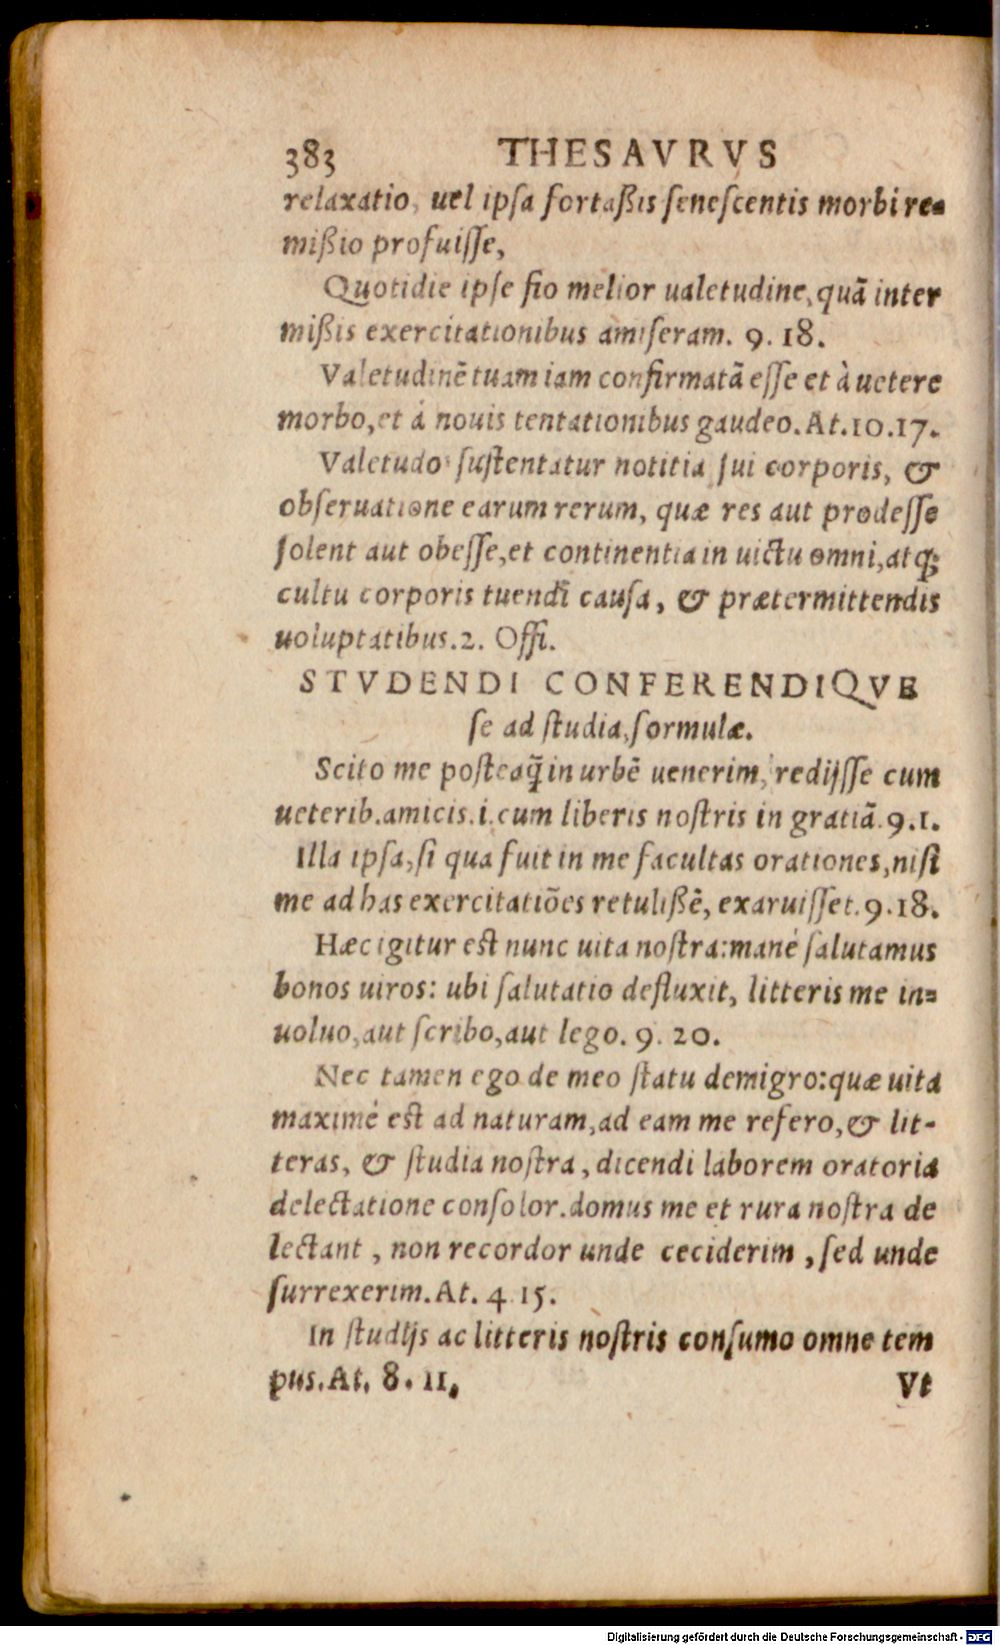 383 THESAVRVS
relaxatio, uel ipsa fortaßis senescentis morbi re=
mißio profuisse,
Quotidie ipse fio melior ualetudine, quā inter
mißis exercitationibus amiseram. 9. 18.
Valetudinē tuam iam confirmatā esse et à uetere
morbo, et á nouis tentationibus gaudeo. At. 10. 17.
Valetudo sustentatur notitia sui corporis, &
obseruatione earum rerum, quæ res aut prodesse
solent aut obesse, et continentia in uictu omni, atq;
cultu corporis tuendi causa, & prætermittendis
uoluptatibus. 2. Offi.
STVDENDI CONFERENDIQVE
se ad studia, formulæ.
Scito me posteaq̃ in urbē uenerim, redijsse cum
ueterib. amicis. i. cum liberis nostris in gratiā. 9. 1.
Illa ipsa, si qua fuit in me facultas orationes, nisi
me ad has exercitatiões retulißē, exaruisset. 9. 18.
Hæc igitur est nunc uita nostra: mané salutamus
bonos uiros: ubi salutatio defluxit, litteris me in=
uoluo, aut scribo, aut lego. 9. 20.
Nec tamen ego de meo statu demigro: quæ uita
maximé est ad naturam, ad eam me refero, & lit-
teras, & studia nostra, dicendi laborem oratoria
delectatione consolor. domus me et rura nostra de
lectant, non recordor unde ceciderim, sed unde
surrexerim. At. 4 15.
In studijs ac litteris nostris consumo omne tem
pus. At. 8. 11.
Vt
Digitalisierung gefördert durch die Deutsche Forschungsgemeinschaft - DFG